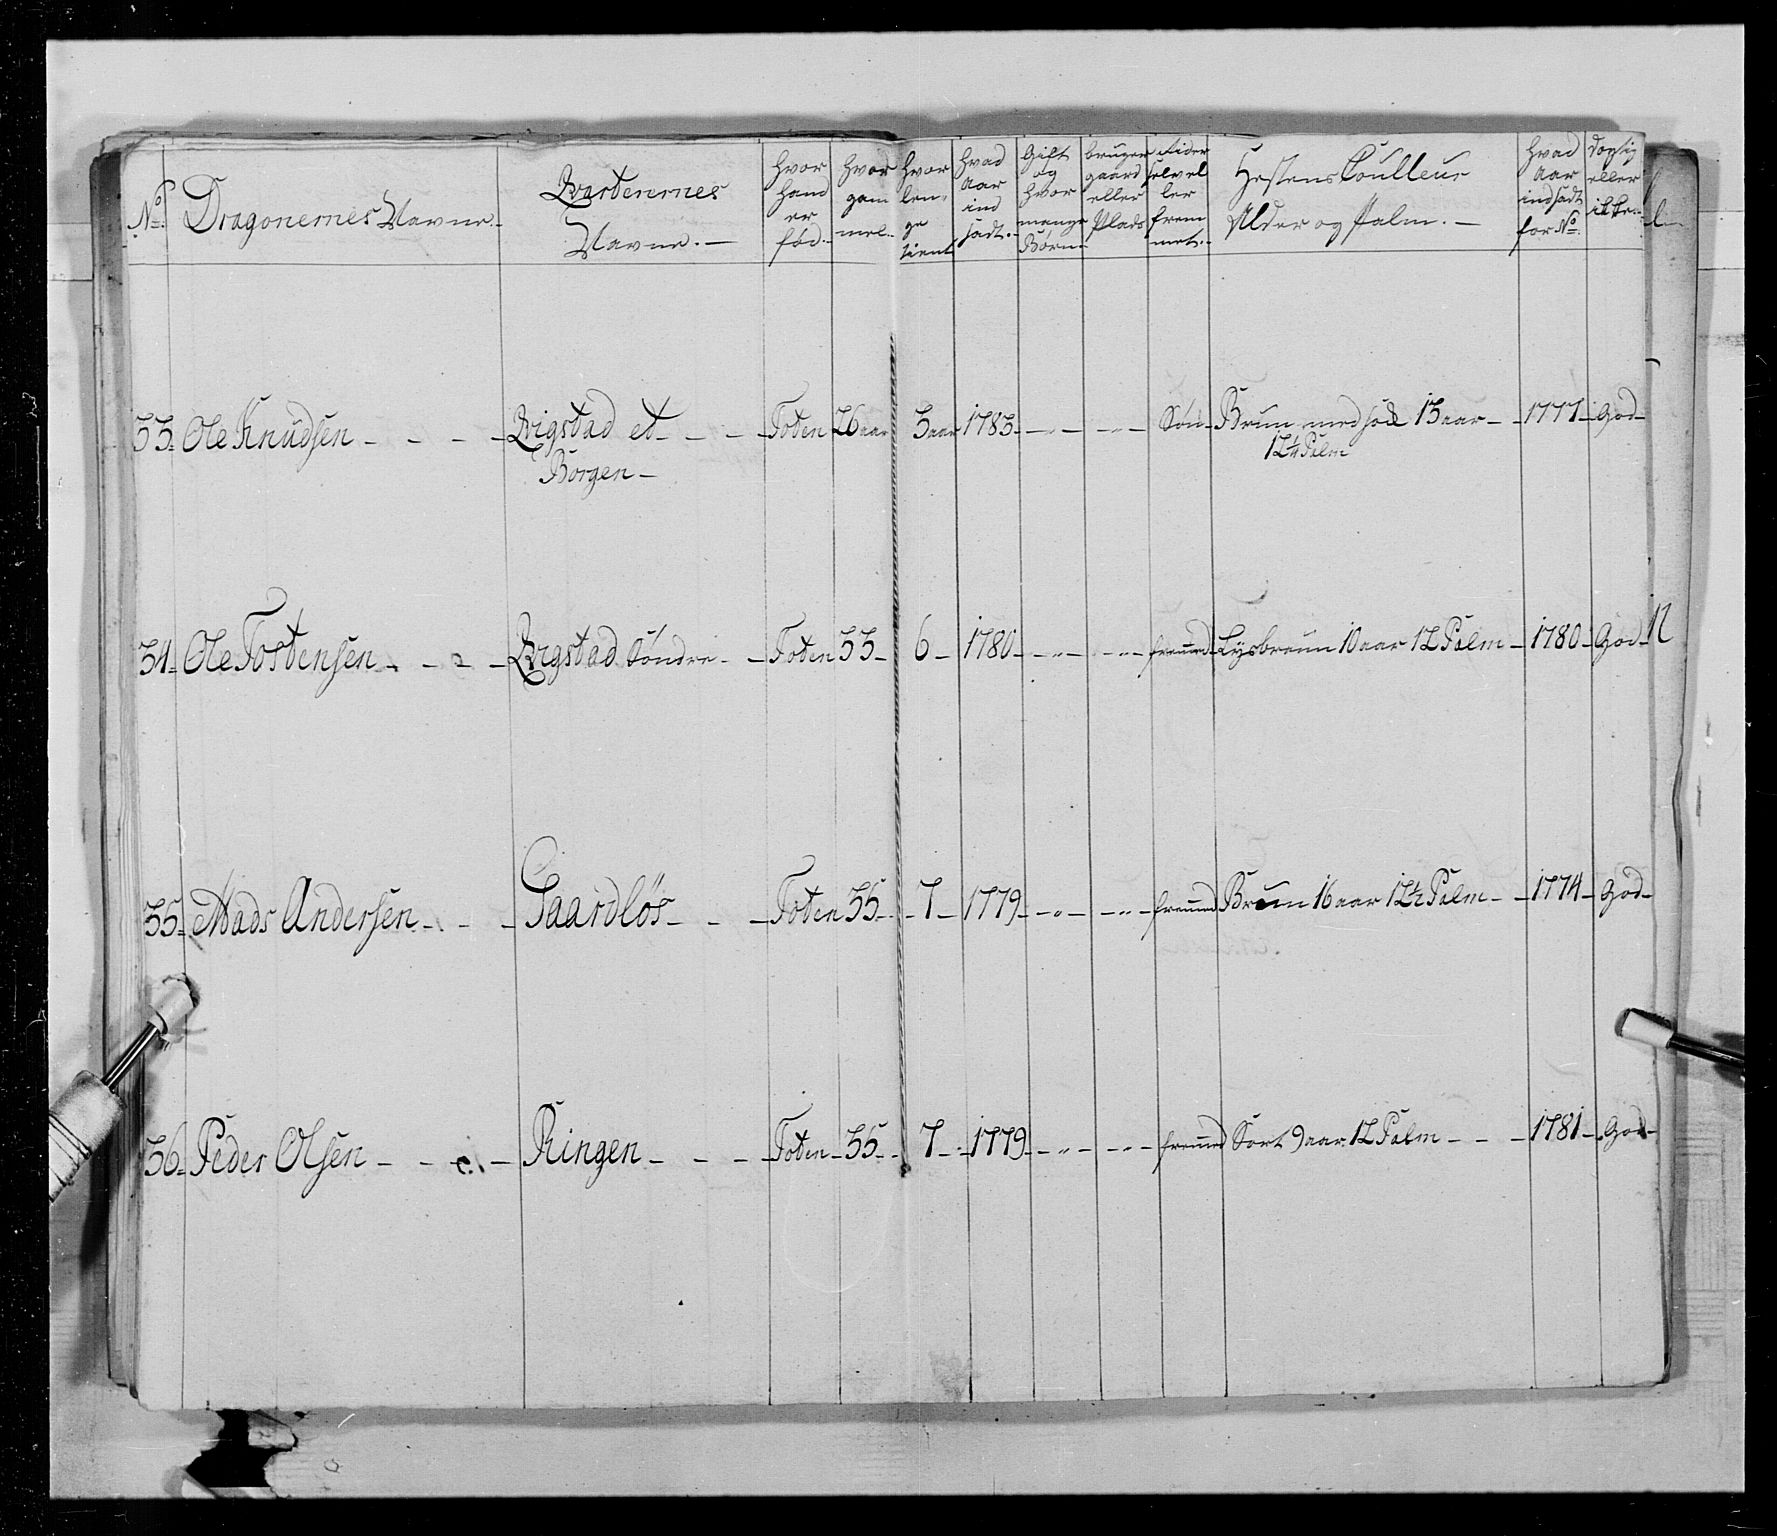 No.
Dragonernes Navne.
Qvarterernes
Navne.
hvor
hand
er
fød.
hvor
gam
mel.
hvor
len-
ge
tient
hvad
Aar
ind
sadt.
Gift
og
hvor
mange
Børn
bruger
gaard
eller
Plads
Rider
selv el
ler
frem
met.
Hestens Coulleur
Alder og Palm.
hvad
Aar
indsadt
for No.
Dygtig
eller
ikke.
33. Ole Knudsen - - - - Qvigstad et - - - Toten 26 aar 3 aar 1783 - „ - - „ - Søn Brun med 13 aar - 1777 - God -
Borgen -
12¼ Palm
34. Ole Tostensen - - - - Qvigstad Søndre - - Toten 33 - 6 - 1780 - „ - - „ - fremed Lysbruun 10 aar 12 Palm - 1780 - God -
35. Mads Andersen - - - Gaardløs - - - Toten 35 - 7 - 1779 - „ - - „ - fremed Bruun 16 aar 12½ Palm - 1774 - God -
36. Peder Olsen - - - - Ringen - - - Toten 35 - 7 - 1779 - „ - - „ - fremed Sort 9 aar 12 Palm - - - 1781 - God -